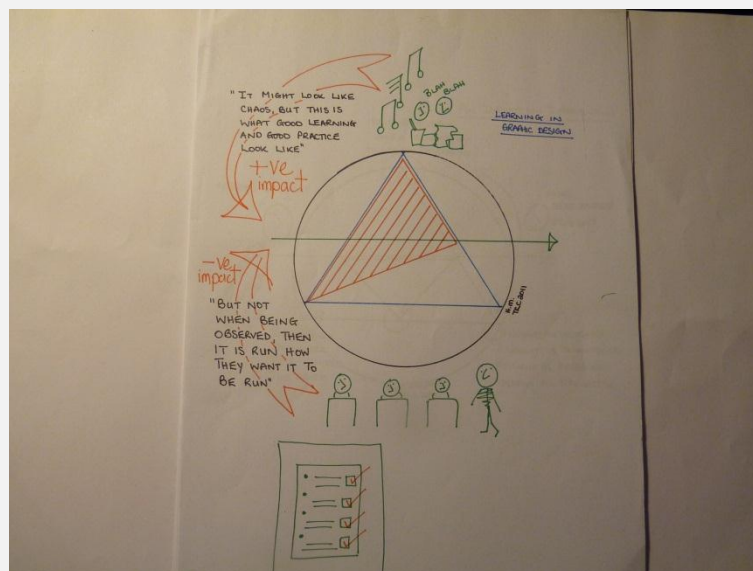 "IT MIGHT LOOK LIKE
CHAOS, BUT THIS IS
WHAT GOOD LEARNING
AND GOOD PRACTICE
LOOK LIKE"
BLAH
BLAH
LEARNING IN
GRAPHIC DESIGN
+ve
impact
-ve
impact
"BUT NOT
WHEN BEING
OBSERVED, THEN
IT IS RUN HOW
THEY WANT IT TO
BE RUN"